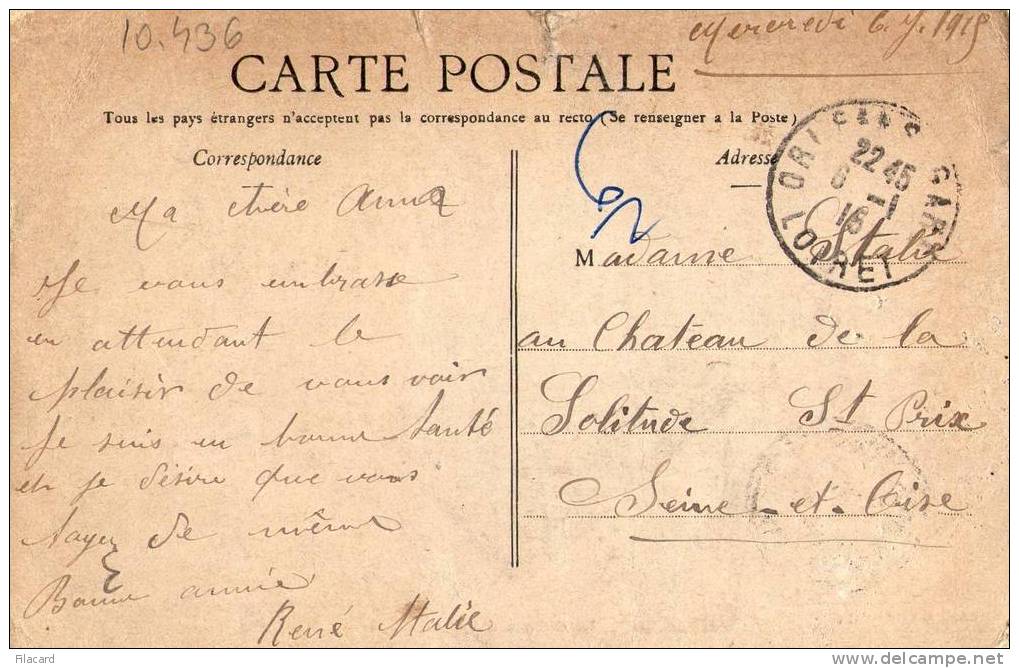 10.436
Mercredi 6. J. 1915
CARTE POSTALE
Tous les pays étrangers n'acceptent pas la correspondance au recto (Se renseigner a la Poste)
Correspondance
Adresse
ORLEANS GARE
22 45
6 -1
15
LOIRET
Ma chère
Je vous embrasse
en attendant le
plaisir de vous voir
Je suis en bonne santé
et je désire que vous
soyez de même
Bonne année
René Stalie
Madame Stalie
au Chateau de la
Solitude St Prix
Seine-et-Oise
Filacard
delcampe.net